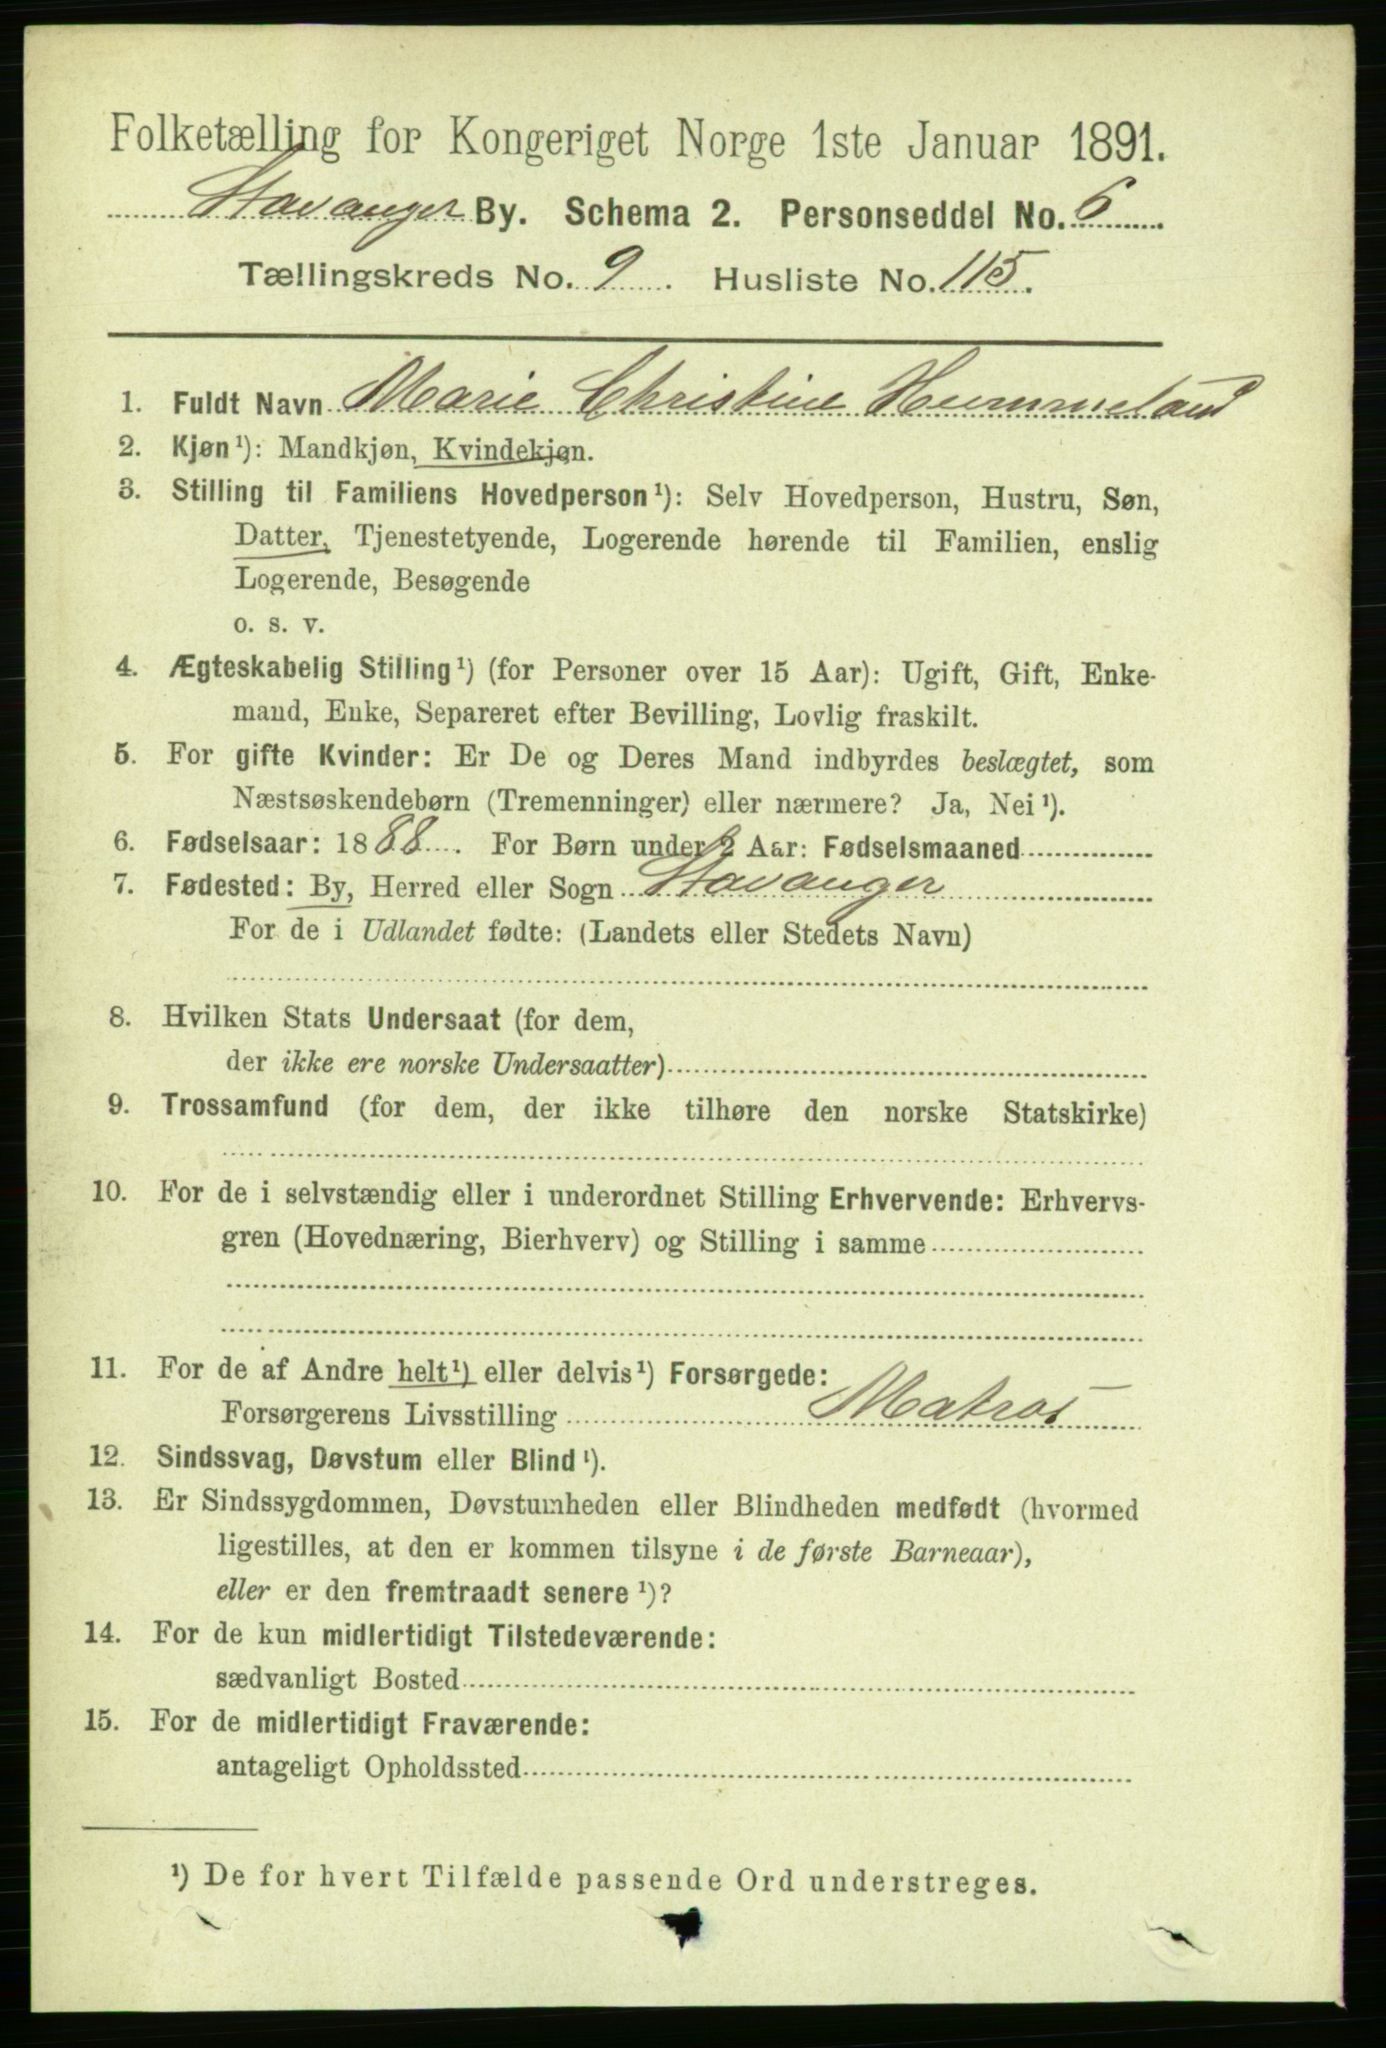 Folketælling for Kongeriget Norge 1ste Januar 1891.
Stavanger By. Schema 2. Personseddel No. 6
Tællingskreds No. 9. Husliste No. 115.
1. Fuldt Navn Marie Christine Hummeland
2. Kjøn¹): Mandkjøn, Kvindekjøn.
3. Stilling til Familiens Hovedperson¹): Selv Hovedperson, Hustru, Søn,
Datter, Tjenestetyende, Logerende hørende til Familien, enslig
Logerende, Besøgende
o. s. v.
4. Ægteskabelig Stilling¹) (for Personer over 15 Aar): Ugift, Gift, Enke-
mand, Enke, Separeret efter Bevilling, Lovlig fraskilt.
5. For gifte Kvinder: Er De og Deres Mand indbyrdes beslægtet, som
Næstsøskendebørn (Tremenninger) eller nærmere? Ja, Nei¹).
6. Fødselsaar: 1888. For Børn under 2 Aar: Fødselsmaaned
7. Fødested: By, Herred eller Sogn Stavanger
For de i Udlandet fødte: (Landets eller Stedets Navn)
8. Hvilken Stats Undersaat (for dem,
der ikke ere norske Undersaatter)
9. Trossamfund (for dem, der ikke tilhøre den norske Statskirke)
10. For de i selvstændig eller i underordnet Stilling Erhvervende: Erhvervs-
gren (Hovednæring, Bierhverv) og Stilling i samme
11. For de af Andre helt¹) eller delvis¹) Forsørgede:
Forsørgerens Livsstilling Matros
12. Sindssvag, Døvstum eller Blind¹).
13. Er Sindssygdommen, Døvstumheden eller Blindheden medfødt (hvormed
ligestilles, at den er kommen tilsyne i de første Barneaar),
eller er den fremtraadt senere¹)?
14. For de kun midlertidigt Tilstedeværende:
sædvanligt Bosted
15. For de midlertidigt Fraværende:
antageligt Opholdssted
¹) De for hvert Tilfælde passende Ord understreges.